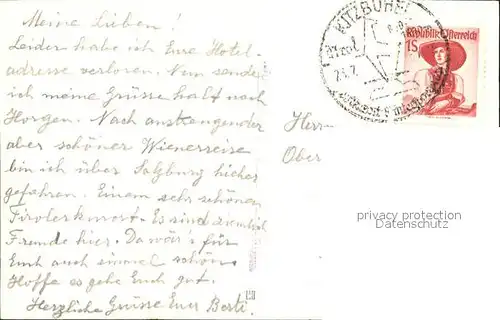 Meine Lieben!
Leider habe ich Eure Hotel-
adresse verloren. Nun sende
ich meine Grüsse halt nach
Horgen. Nach anstrengender
aber schöner Wienerreise
bin ich über Salzburg hieher
gefahren. Einem sehr schönen
Tirolerkurort. Es sind ziemlich
Fremde hier. Da wär's für
Euch auch einmal schön.
Hoffe es gehe Euch gut.
Herzliche Grüsse Euer Berti.
KITZBÜHEL
Republik Österreich
1S
Herrn
Ober
privacy protection
Datenschutz